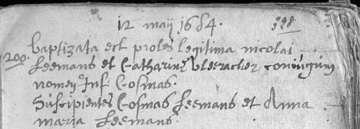 12 maij 1684.
398
baptizata est proles legitima nicolai
200. Leemans et Catharina Uleeracker coniugum
nomen Inf Cosmas
Suscipientes Cosmas Leemans et Anna
maria Leemans.